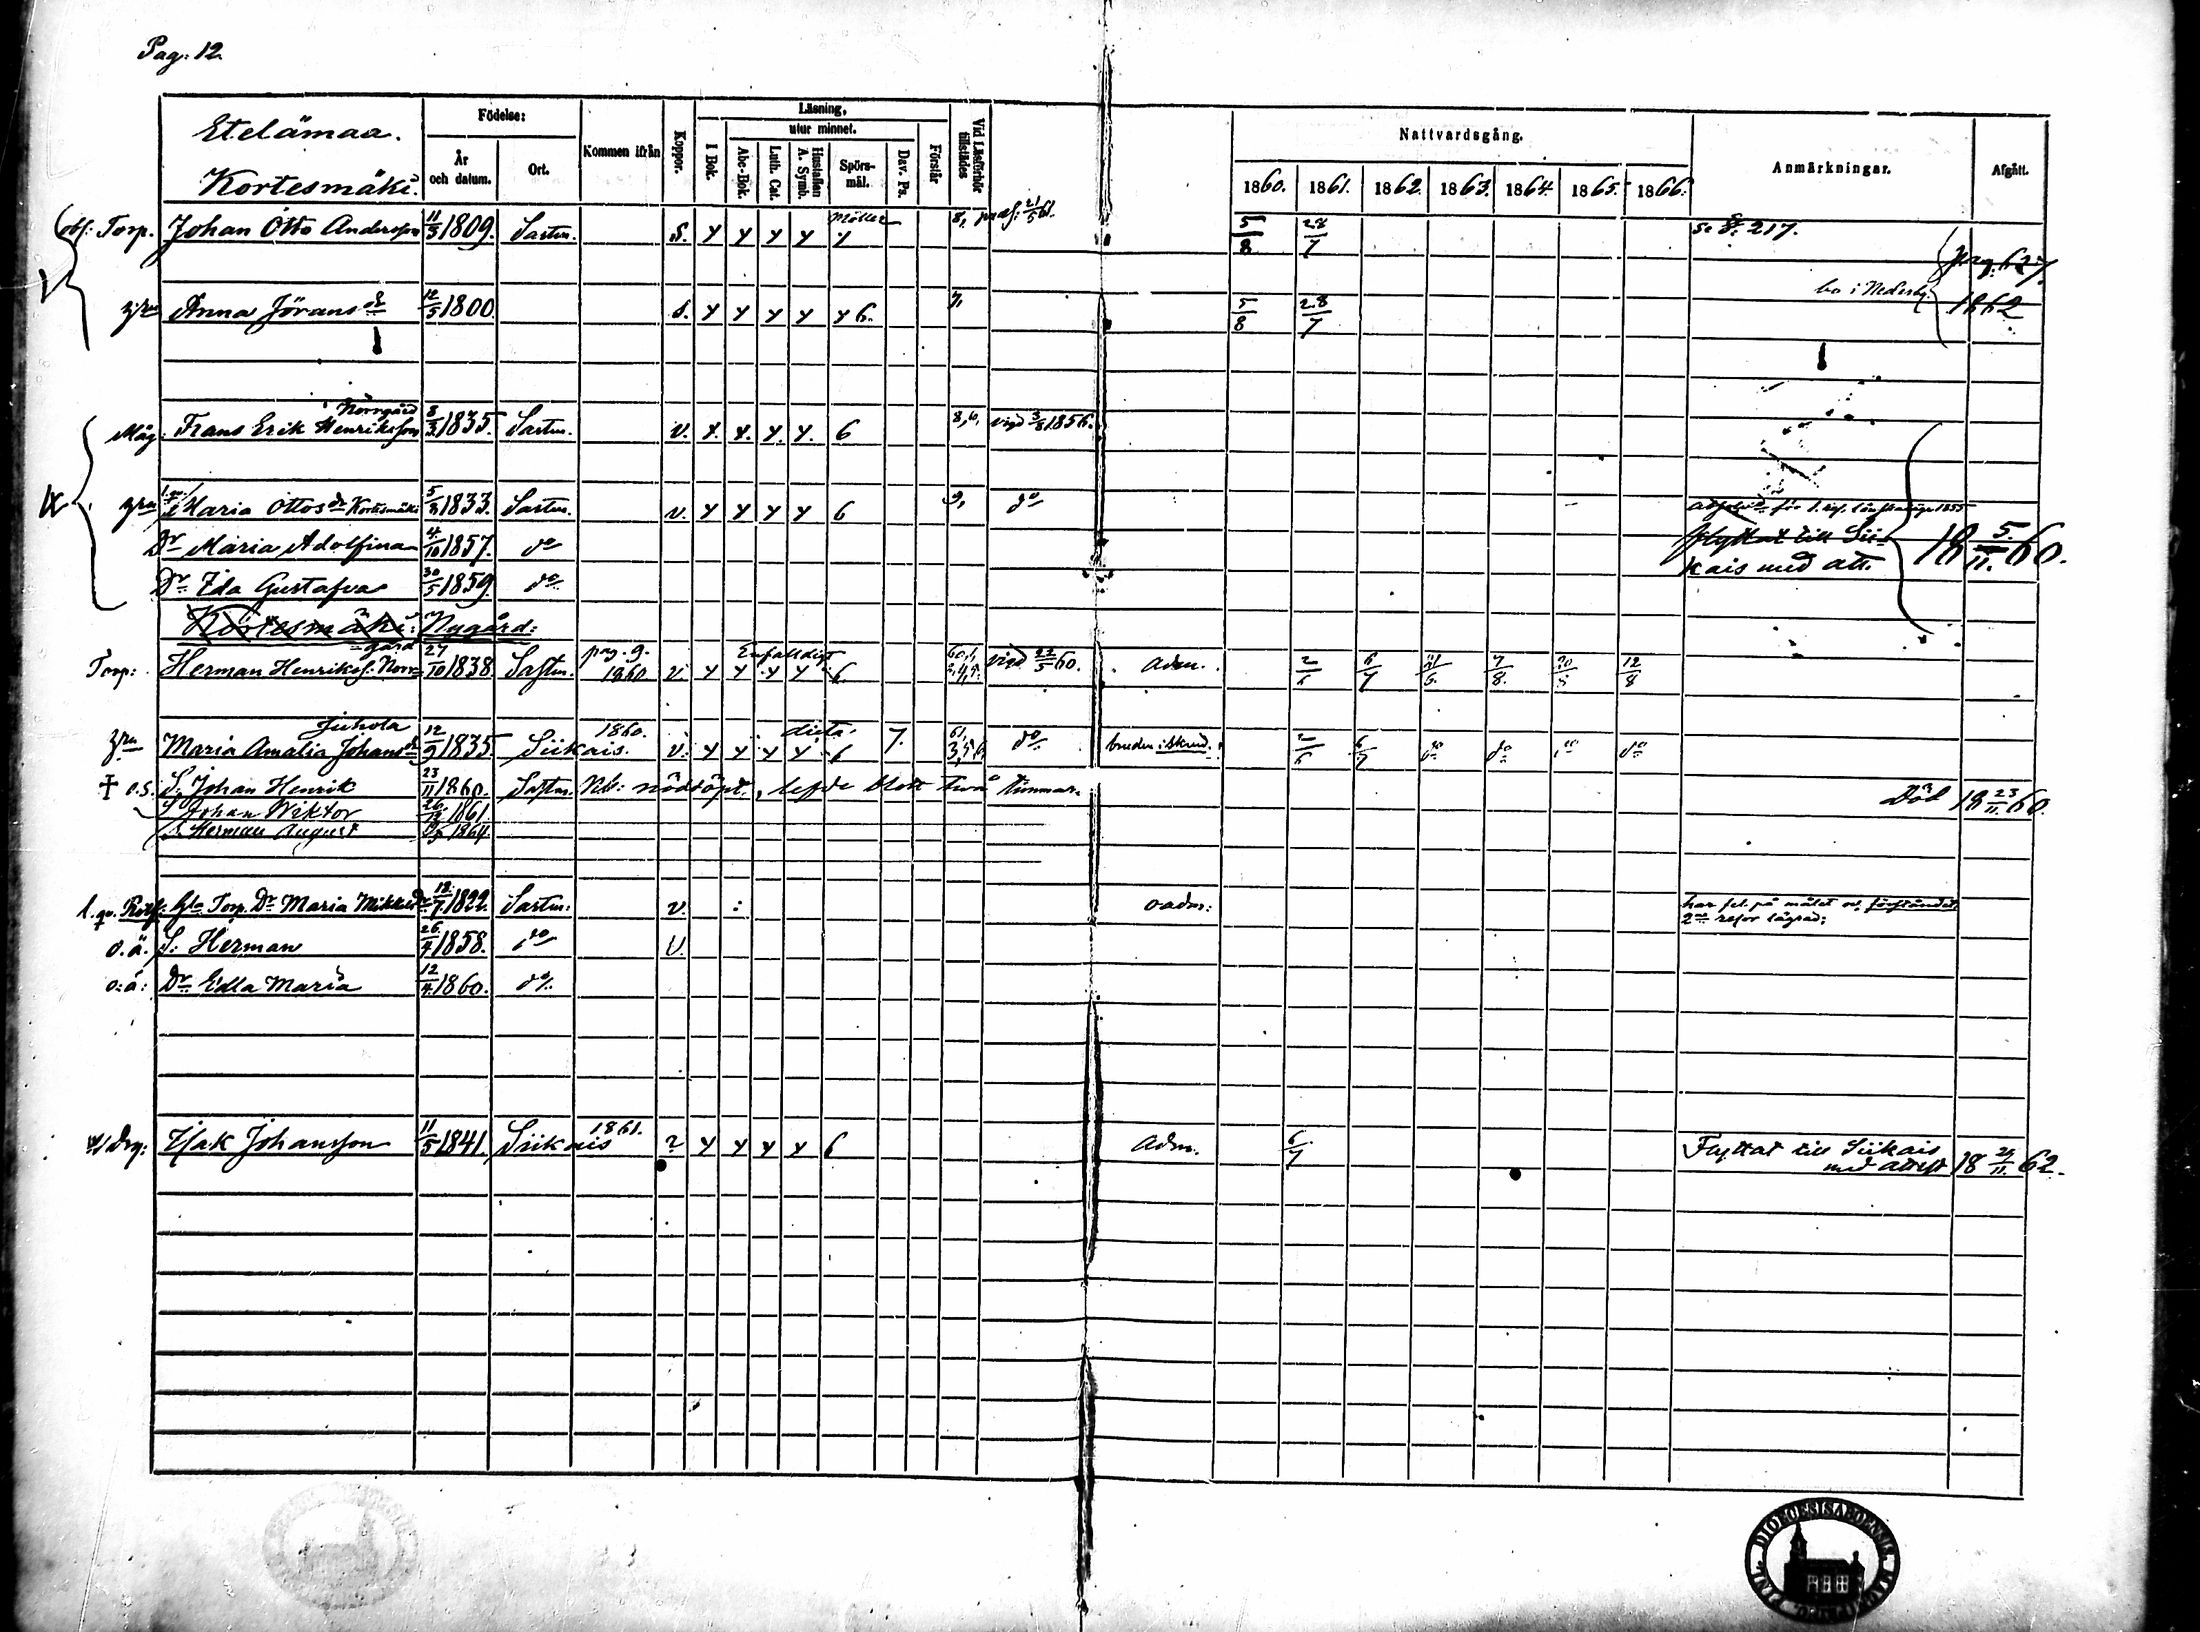 Pag: 12.
Etelämaa.
Kortesmäki.
Födelse:
År och datum.
Ort.
Kommen ifrån
Koppor.
Läsning,
I Bok.
utur minnet.
Abc-Bok.
Luth. Cat.
Hustaflan A. Symb.
Spörs-mål.
Dav. Ps.
Förstår
Vid Läsförhör tillstädes
Nattvardsgång.
1860. 1861. 1862. 1863. 1864 1865. 1866.
Anmärkningar.
Afgått.
Torp. Johan Otto Andersson 11/3 1809. Sastm. S. y y y y Möller y 8, 21/5 61. 5/8 28/7 se S: 217.
Pag. 627.
hru Anna Jörans dr 12/5 1800. S. y y y y y 6. 7, 5/8 28/7 bo i Nederby. 1862
Norrgård
Måg: Frans Erik Henriksson 8/3 1835. Sastm. v. y. y. y. y. 6 8,6, vigd 3/8 1856.
hru Maria Ottos dr Kortesmäki 5/3 1833. Sastm. v. y y y y 6 9, do
Dr Maria Adolfina 4/10 1857. do flyttat till Sii-
kais med att. 18 5/11. 60.
Dr Ida Gustafva 30/5 1859. do
Kortesmäki: Nygård:
gård
Torp: Herman Henrikss: Norr= 27/10 1838. Sastm. pag. 9. 1860 v. y y y y Enfalldigt 6 vigd 22/5 60. adm. 2/6 6/7 7/8. 12/8
Juhola
hru Maria Amalia Johans dr 12/9 1835. Siikais. 1860. v. y y y y dito. 6 7. do 2/6 6/7 do do do do
† o.ä. S. Johan Henrik 23/11 1860. Sastm. Nb: nöddöpt, lefde blott två timmar. Död 18 23/11. 60.
S Johan Wiktor 26/12 1861
S Herman August 1864
Maria Mikkels dr 12/7 1822. Sastm: v. oadm: har fel på målet o. förståndet,
2ne resor lägrad;
o.ä. S: Herman 26/4 1858. do v.
o:ä: Dr Edla Maria 12/4 1860. do
Drg: Isak Johansson 11/5 1841. Siikais 1861. ? y y y y 6 adm. 6/7 Flyttat till Siikais
med attest 18 /11. 62.
DIOECESIS ABOENSIS